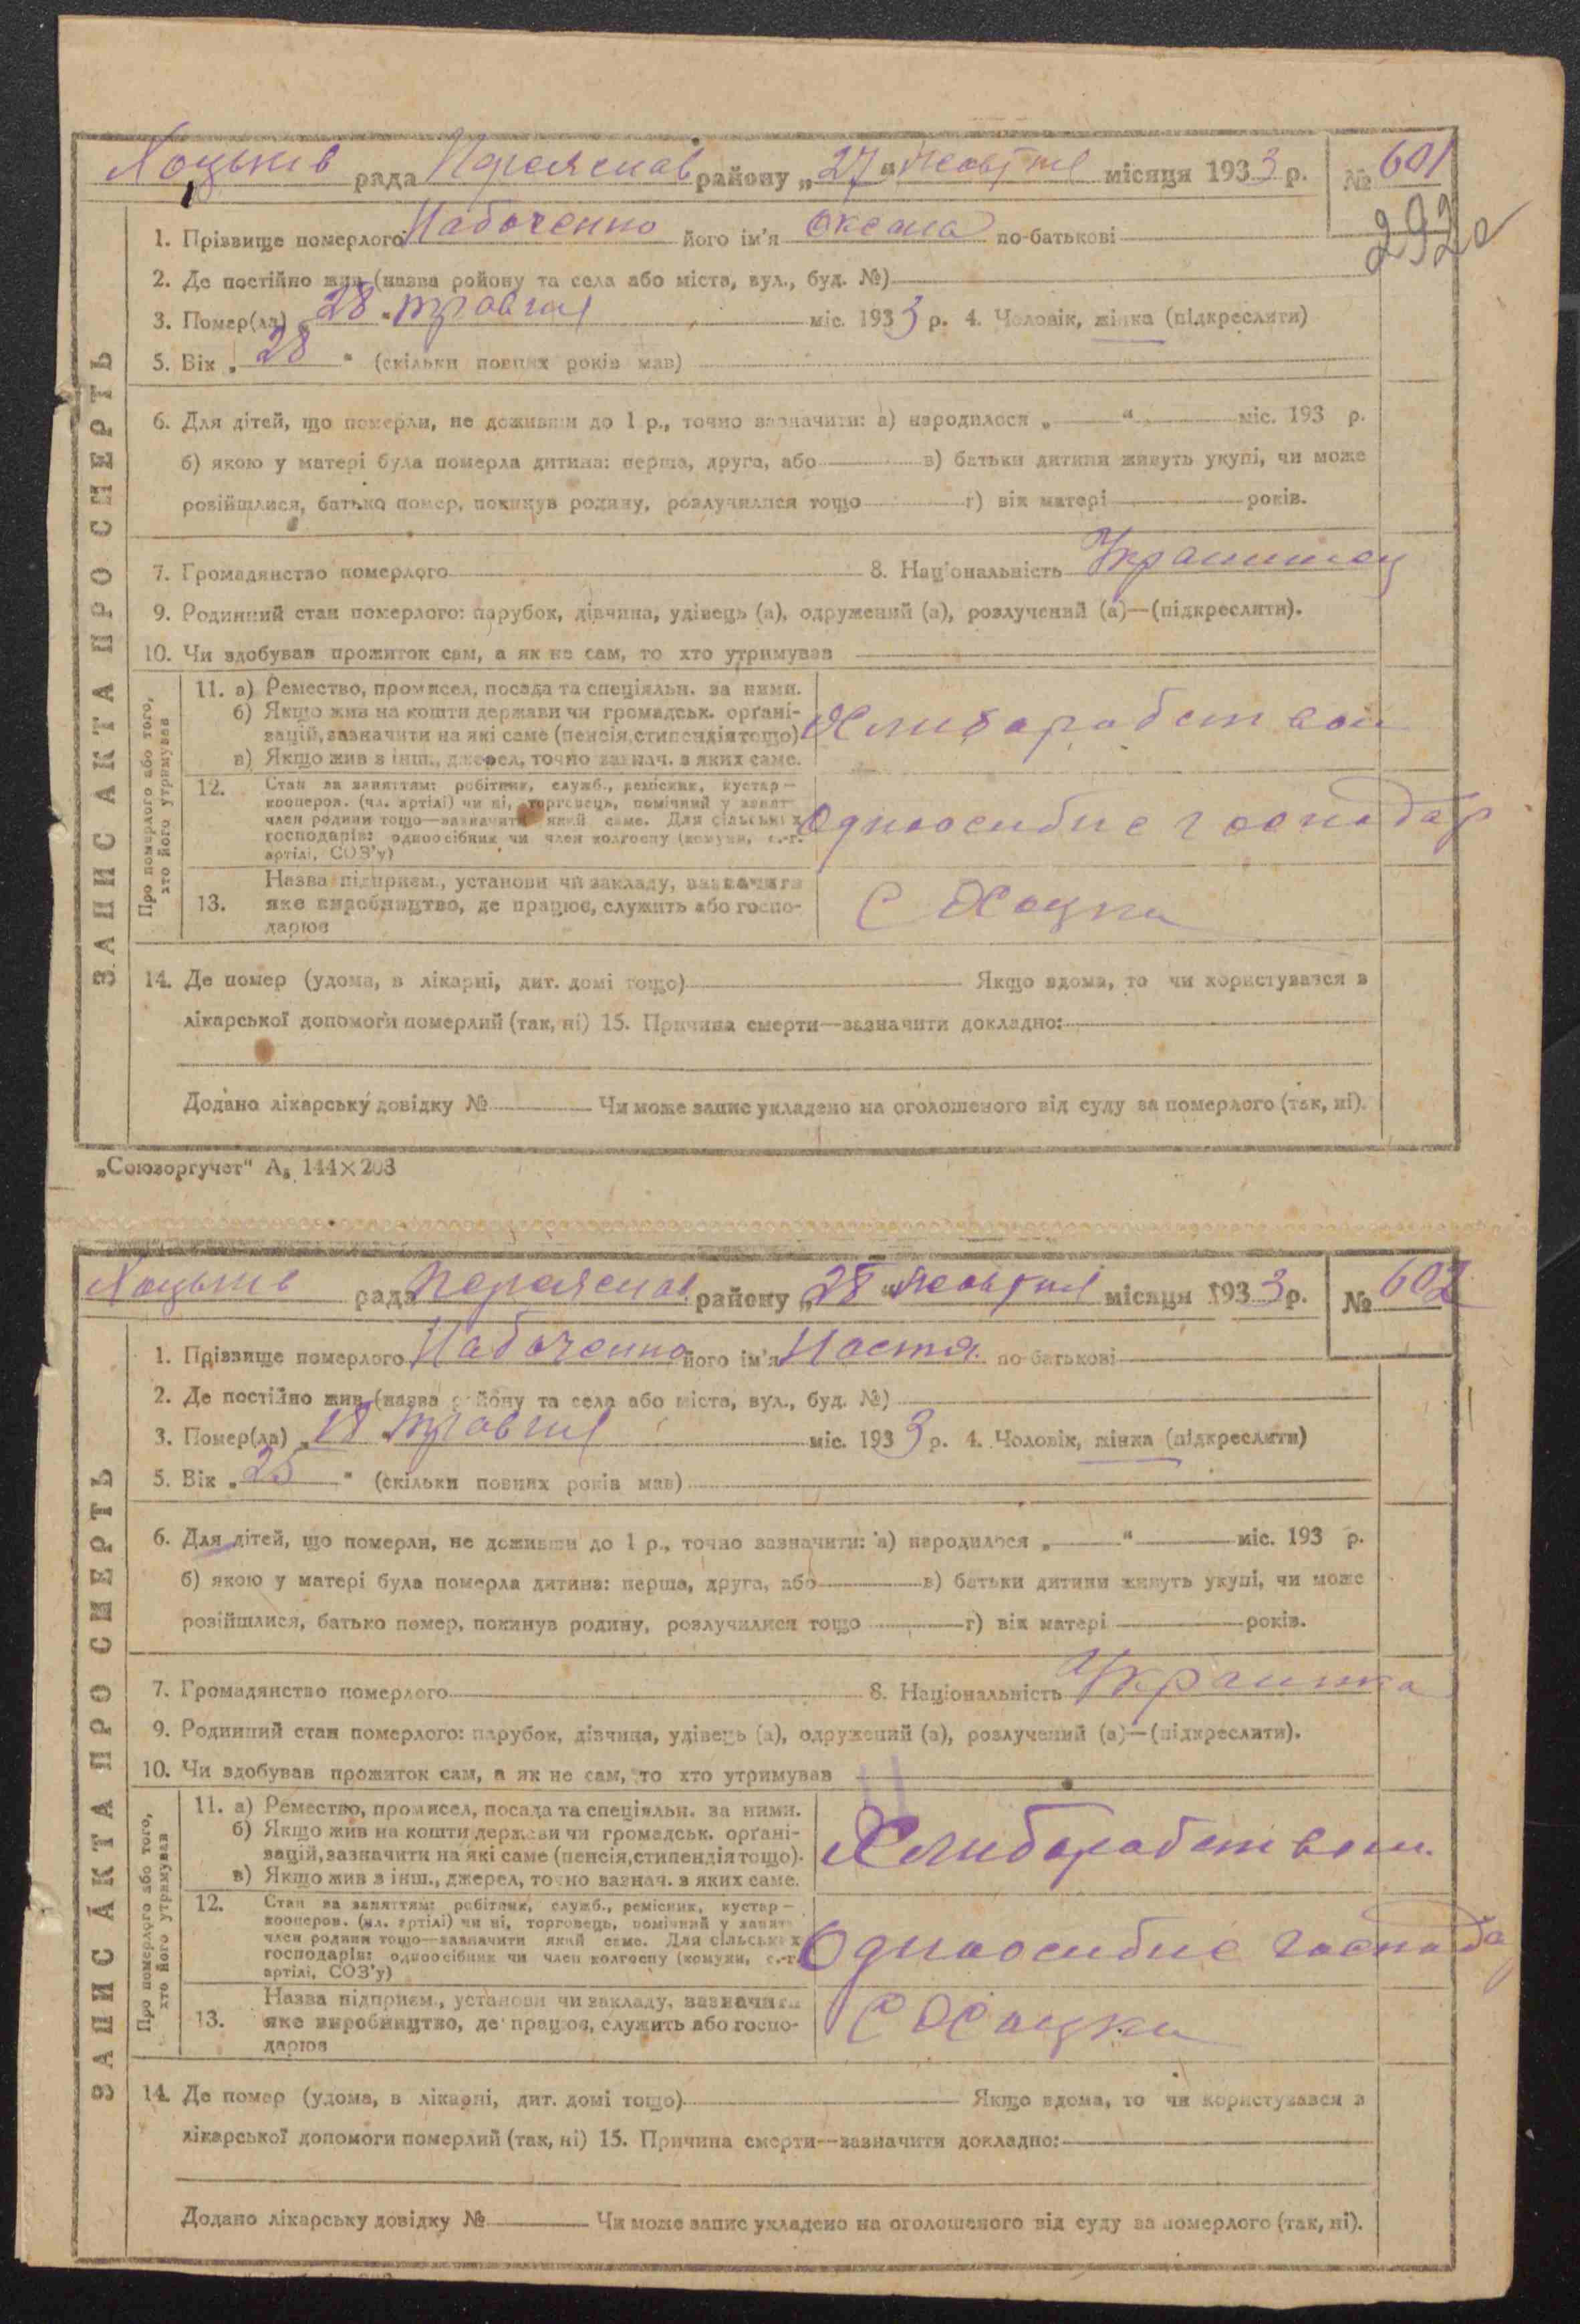 Хоцьків рада Переяслав району „27“ жовтня місяця 1933 р. № 601
292
1. Прізвище померлого Набоченко його ім'я Оксана по-батькові
2. Де постійно жив (назва району та села або міста, вул., буд. №)
3. Помер(ла) „28“ травня міс. 1933 р. 4. Чоловік, жінка (підкреслити)
5. Вік „28“ (скільки повних років мав)
6. Для дітей, що померли, не доживши до 1 р., точно зазначити: а) народилося „ “ міс. 193 р.
б) якою у матері була померла дитина: перша, друга, або в) батьки дитини живуть укупі, чи може
розійшлися, батько помер, покинув родину, розлучилися тощо г) вік матері років.
7. Громадянство померлого 8. Національність
9. Родинний стан померлого: парубок, дівчина, удівець (а), одружений (а), розлучений (а)—(підкреслити).
10. Чи здобував прожиток сам, а як не сам, то хто утримував
ЗАПИС АКТА ПРО СМЕРТЬ
Про померлого або того,
хто його утримував
11. а) Ремество, промисел, посада та спеціяльн. за ними.
б) Якщо жив на кошти держави чи громадськ. орґані-
зацій, зазначити на які саме (пенсія, стипендія тощо)
в) Якщо жив з інш., джерел, точно зазнач. з яких саме.
Хлиборобством
12. Стан за заняттям: робітник, служб., ремісник, кустар—
кооперов. (чл. артілі) чи ні, торговець, помічний у занят.
член родини тощо—зазначити який саме. Для сільських
господарів: одноосібник чи член колгоспу (комуни, с.-г.
артілі, СОЗ'у)
Одноосибне господар
13. Назва підприєм., установи чи закладу, зазначити
яке виробництво, де працює, служить або госпо-
дарює
С Хоцки
14. Де помер (удома, в лікарні, дит. домі тощо) Якщо вдома, то чи користувався з
лікарської допомоги померлий (так, ні) 15. Причина смерти—зазначити докладно:
Додано лікарську довідку № Чи може запис укладено на оголошеного від суду за померлого (так, ні).
„Союзоргучет“ А₅ 144×203
Хоцьків рада Переяслав району „28“ жовтня місяця 1933 р. № 602
1. Прізвище померлого Набоченко його ім'я Настя по-батькові
2. Де постійно жив (назва району та села або міста, вул., буд. №)
3. Помер(ла) „18“ травня міс. 1933 р. 4. Чоловік, жінка (підкреслити)
5. Вік „25“ (скільки повних років мав)
6. Для дітей, що померли, не доживши до 1 р., точно зазначити: а) народилося „ “ міс. 193 р.
б) якою у матері була померла дитина: перша, друга, або в) батьки дитини живуть укупі, чи може
розійшлися, батько помер, покинув родину, розлучилися тощо г) вік матері років.
7. Громадянство померлого 8. Національність Украинка
9. Родинний стан померлого: парубок, дівчина, удівець (а), одружений (а), розлучений (а)—(підкреслити).
10. Чи здобував прожиток сам, а як не сам, то хто утримував
ЗАПИС АКТА ПРО СМЕРТЬ
Про померлого або того,
хто його утримував
11. а) Ремество, промисел, посада та спеціяльн. за ними.
б) Якщо жив на кошти держави чи громадськ. орґані-
зацій, зазначити на які саме (пенсія, стипендія тощо).
в) Якщо жив з інш., джерел, точно зазнач. з яких саме.
Хлиборобством.
12. Стан за заняттям: робітник, служб., ремісник, кустар—
кооперов. (чл. артілі) чи ні, торговець, помічний у занят.
член родини тощо—зазначити який саме. Для сільських
господарів: одноосібник чи член колгоспу (комуни, с.-г.
артілі, СОЗ'у)
Одноосибне господа
13. Назва підприєм., установи чи закладу, зазначити
яке виробництво, де працює, служить або госпо-
дарює
С Хоцки
14. Де помер (удома, в лікарні, дит. домі тощо) Якщо вдома, то чи користувався з
лікарської допомоги померлий (так, ні) 15. Причина смерти—зазначити докладно:
Додано лікарську довідку № Чи може запис укладено на оголошеного від суду за померлого (так, ні).